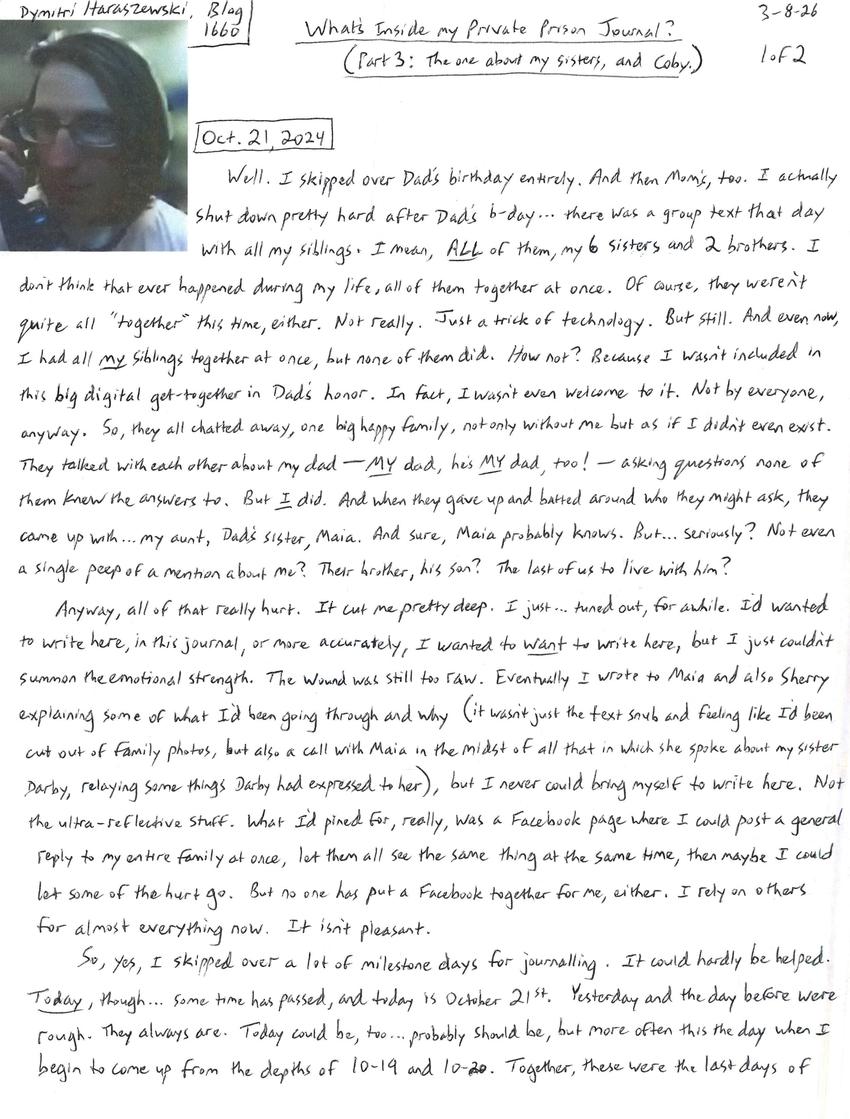 Dymitri Haraszewski, Blog
1660
What's Inside my Private Prison Journal?
(Part 3: The one about my sisters, and Coby.)
3-8-26
1 of 2
Oct. 21, 2024
Well. I skipped over Dad's birthday entirely. And then Mom's, too. I actually
shut down pretty hard after Dad's b-day... there was a group text that day
with all my siblings. I mean, ALL of them, my 6 sisters and 2 brothers. I
don't think that ever happened during my life, all of them together at once. Of course, they weren't
quite all "together" this time, either. Not really. Just a trick of technology. But still. And even now,
I had all my siblings together at once, but none of them did. How not? Because I wasn't included in
this big digital get-together in Dad's honor. In fact, I wasn't even welcome to it. Not by everyone,
anyway. So, they all chatted away, one big happy family, not only without me but as if I didn't even exist.
They talked with each other about my dad — MY dad, he's MY dad, too! — asking questions none of
them knew the answers to. But I did. And when they gave up and batted around who they might ask, they
came up with... my aunt, Dad's sister, Maia. And sure, Maia probably knows. But... seriously? Not even
a single peep of a mention about me? Their brother, his son? The last of us to live with him?
Anyway, all of that really hurt. It cut me pretty deep. I just... tuned out, for awhile. I'd wanted
to write here, in this journal, or more accurately, I wanted to want to write here, but I just couldn't
summon the emotional strength. The wound was still too raw. Eventually I wrote to Maia and also Sherry
explaining some of what I'd been going through and why (it wasn't just the text snub and feeling like I'd been
cut out of family photos, but also a call with Maia in the midst of all that in which she spoke about my sister
Darby, relaying some things Darby had expressed to her), but I never could bring myself to write here. Not
the ultra-reflective stuff. What I'd pined for, really, was a Facebook page where I could post a general
reply to my entire family at once, let them all see the same thing at the same time, then maybe I could
let some of the hurt go. But no one has put a Facebook together for me, either. I rely on others
for almost everything now. It isn't pleasant.
So, yes, I skipped over a lot of milestone days for journalling. It could hardly be helped.
Today, though... some time has passed, and today is October 21st. Yesterday and the day before were
rough. They always are. Today could be, too... probably should be, but more often this the day when I
begin to come up from the depths of 10-19 and 10-20. Together, these were the last days of